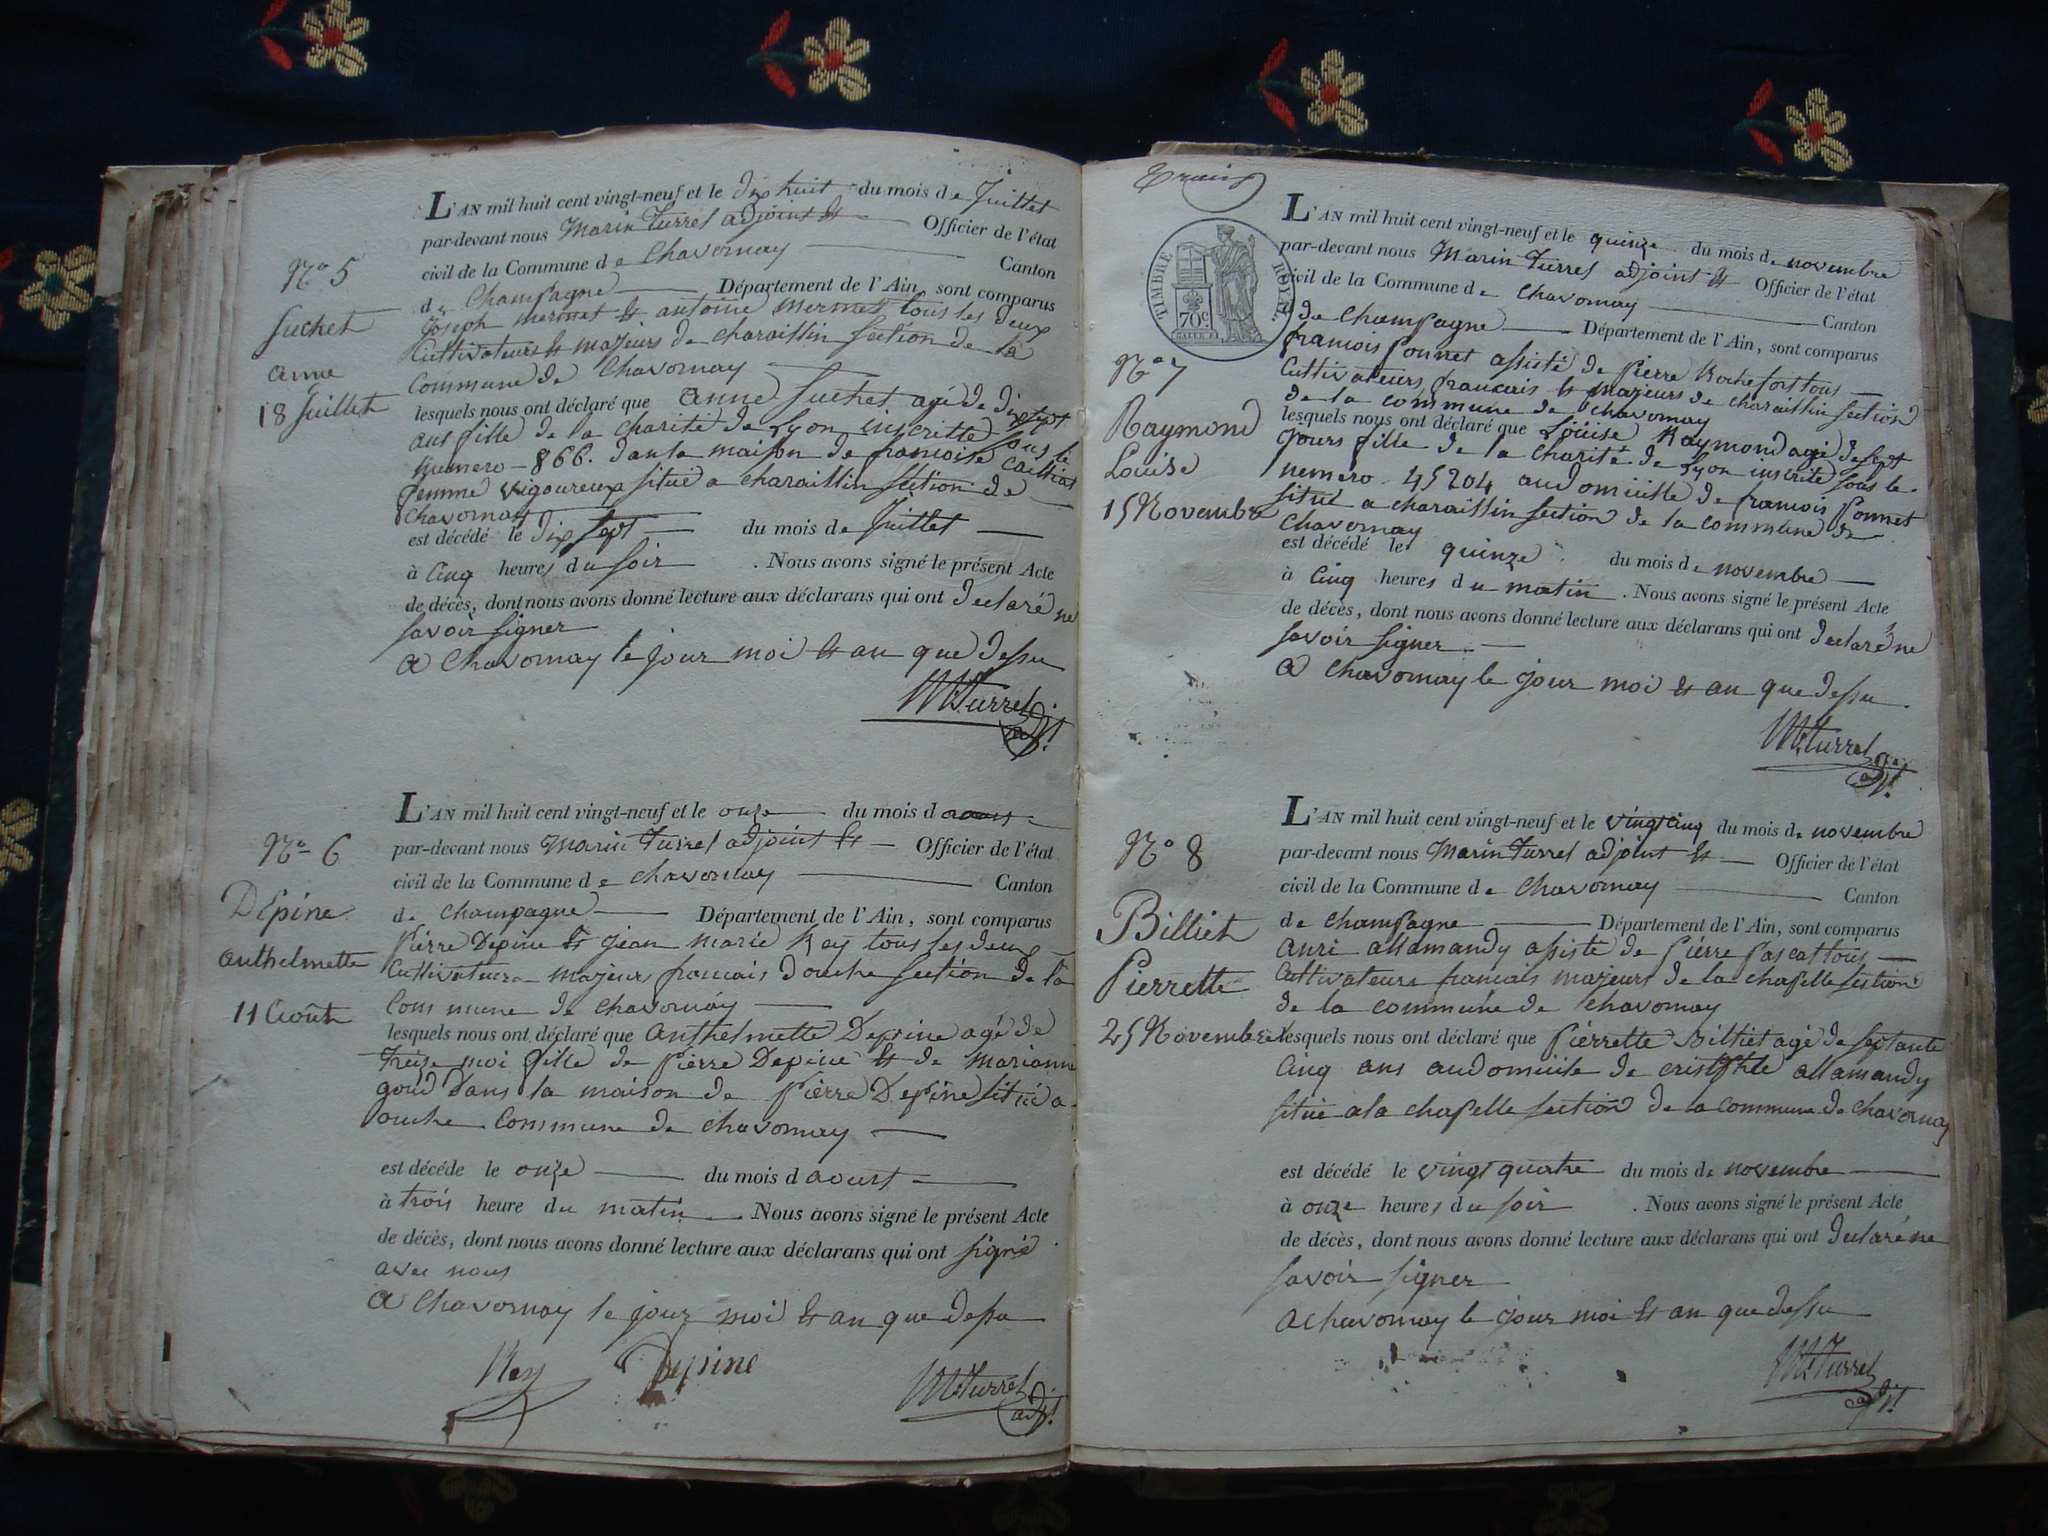 L'AN mil huit cent vingt-neuf et le dix huit du mois de Juillet
par-devant nous Marin Turrel adjoint et Officier de l'état
civil de la Commune de Chavornay Canton
de Champagne Département de l'Ain, sont comparus
Joseph mermet et antoine mermet tous les deux
Cultivateurs et majeurs de charaillin Section de la
Commune de Chavornay
lesquels nous ont déclaré que Anne Suchet agé de dix sept
ans fille de la charité de Lyon inscritte sous le
Numero 866. dans la maison de francoise
femme vigoureux situé a charaillin Section de
Chavornay
est décédé le dix sept du mois de Juillet
à Cinq heures du Soir . Nous avons signé le présent Acte
de décès, dont nous avons donné lecture aux déclarans qui ont declaré ne
savoir signer
a Chavornay le jour moi et an que dessu
M. Turrel
adj.t
N.o 5
Suchet
anne
18 Juillet
L'AN mil huit cent vingt-neuf et le onze du mois d aous
par-devant nous Marin Turrel adjoint et Officier de l'état
civil de la Commune de chavornay Canton
de champagne Département de l'Ain, sont comparus
Pierre Depine et jean marie Rey tous les deux
Cultivateurs majeur francais d'ouche Section de la
Commune de chavornay
lesquels nous ont déclaré que Anthelmette Depine agé de
treize moi fille de Pierre Depine et de marianne
goud dans la maison de Pierre Depine situé a
ouche Commune de chavornay
est décéde le onze du mois d aoust
à trois heure du matin Nous avons signé le présent Acte
de décès, dont nous avons donné lecture aux déclarans qui ont signé
avec nous
a Chavornay le jour moi et an que dessu
Rey Depine M. Turrel
adj.t
N.o 6
Dépine
anthelmette
11 Août
TIMBRE ROYAL
70c
L'AN mil huit cent vingt-neuf et le quinze du mois de novembre
par-devant nous Marin Turrel adjoint et Officier de l'état
civil de la Commune de Chavornay Canton
de Champagne Département de l'Ain, sont comparus
francois Ponnet assisté de pierre Rochefort tous
Cultivateurs francais et majeurs de charaillin Section
de la commune de chavornay
lesquels nous ont déclaré que Loüise Raymond agé de sept
jours fille de la charité de Lyon inscrite sous le
numero 45204 au domicille de francois Ponnet
situé a charaillin Section de la commune de
Chavornay
est décédé le quinze du mois de novembre
à Cinq heures du matin . Nous avons signé le présent Acte
de décès, dont nous avons donné lecture aux déclarans qui ont declaré ne
savoir signer
a chavornay le jour moi et an que dessu
M. Turrel
adj.t
N.o 7
Raymond
Louise
15 Novembre
L'AN mil huit cent vingt-neuf et le vingt cinq du mois de novembre
par-devant nous Marin Turrel adjoint et Officier de l'état
civil de la Commune de Chavornay Canton
de champagne Département de l'Ain, sont comparus
anri allamandy assisté de pierre Pascal tous
Cultivateurs francais majeurs de la chapelle Section
de la commune de chavornay
lesquels nous ont déclaré que Pierrette Billiet agé de septante
Cinq ans au domicile de allamandy
situé a la chapelle section de la commune de chavornay
est décédé le vingt quatre du mois de novembre
à onze heures du soir . Nous avons signé le présent Acte
de décès, dont nous avons donné lecture aux déclarans qui ont declaré ne
savoir signer
a chavornay le jour moi et an que dessu
M. Turrel
adj.t
N.o 8
Billiet
Pierrette
25 Novembre